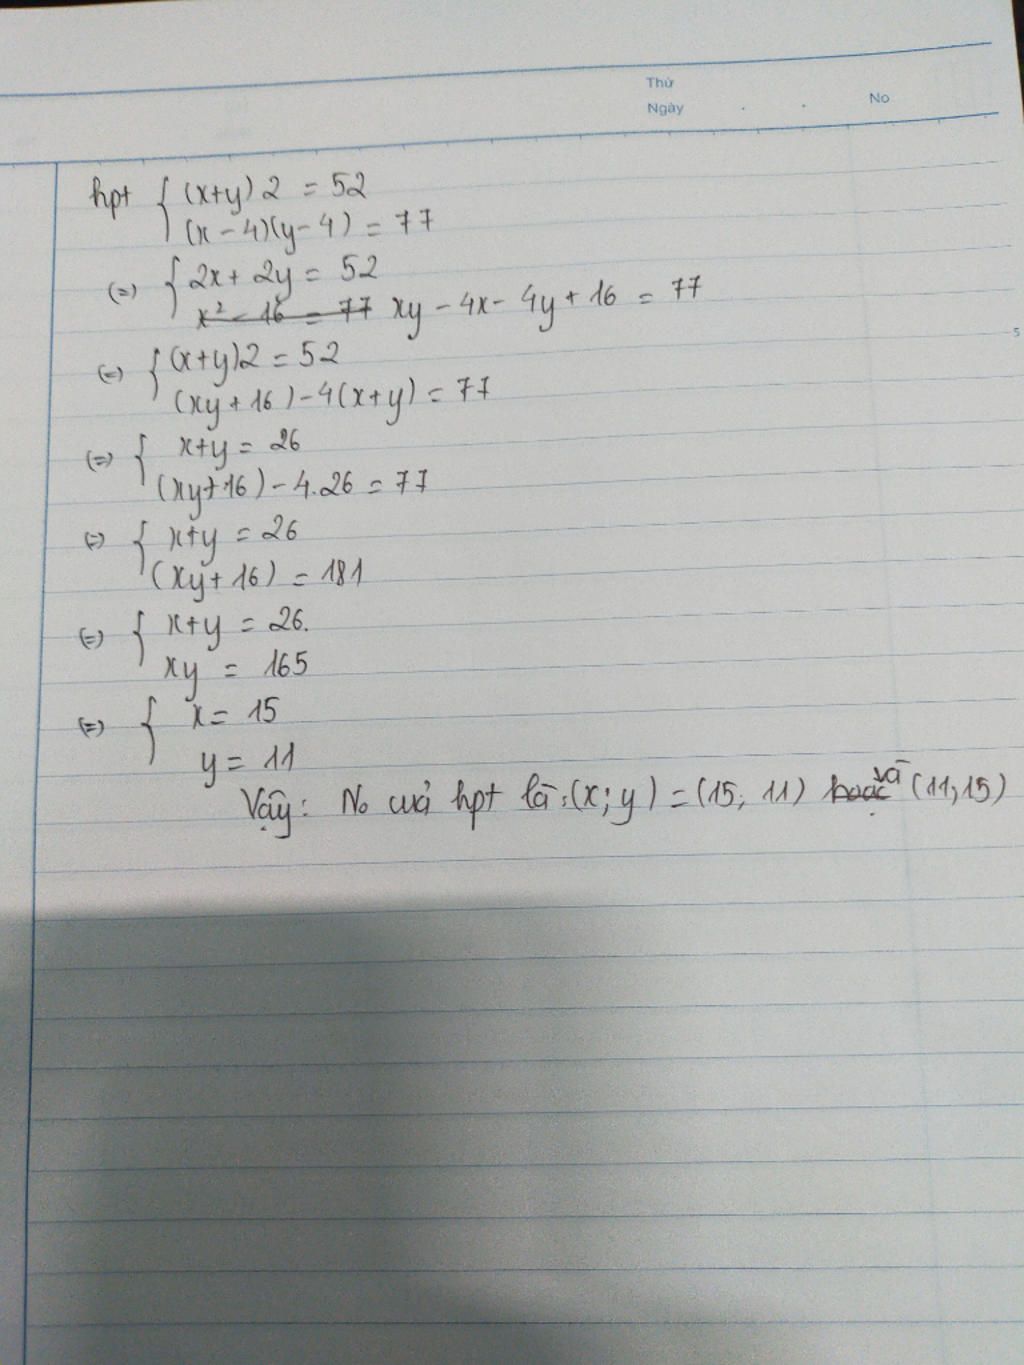 Thứ
Ngày . . No
hpt { (x+y)2 = 52
(x-4)(y-4) = 77
(=) { 2x + 2y = 52
x² - 16 = 77 xy - 4x - 4y + 16 = 77
5
(=) { (x+y)2 = 52
(xy+16) - 4(x+y) = 77
(=) { x+y = 26
(xy+16) - 4.26 = 77
(=) { x+y = 26
(xy+16) = 181
(=) { x+y = 26.
xy = 165
(=) { x = 15
y = 11
Vậy: No cuả hpt là: (x; y) = (15; 11) hoặc và (11,15)